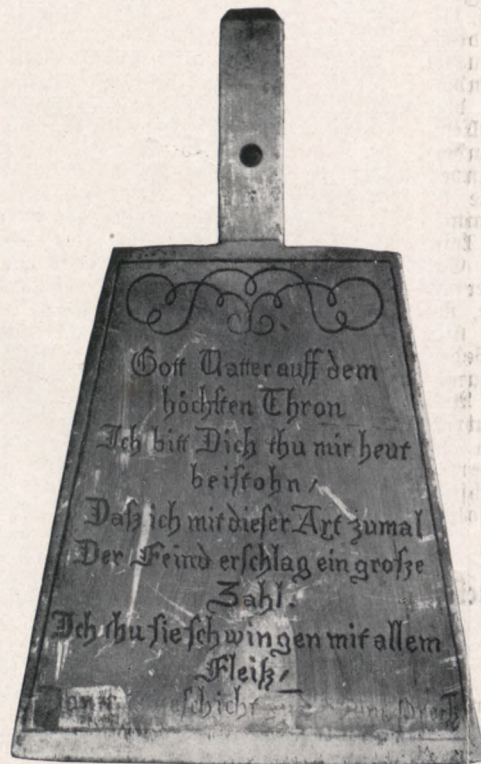 Gott Vatter auff dem
höchsten Thron
Ich bitt Dich thu mir heut
beistohn /
Daß ich mit dieser Axt zumal
Der Feind erschlag ein große
Zahl.
Ich thu sie schwingen mit allem
Fleiß /